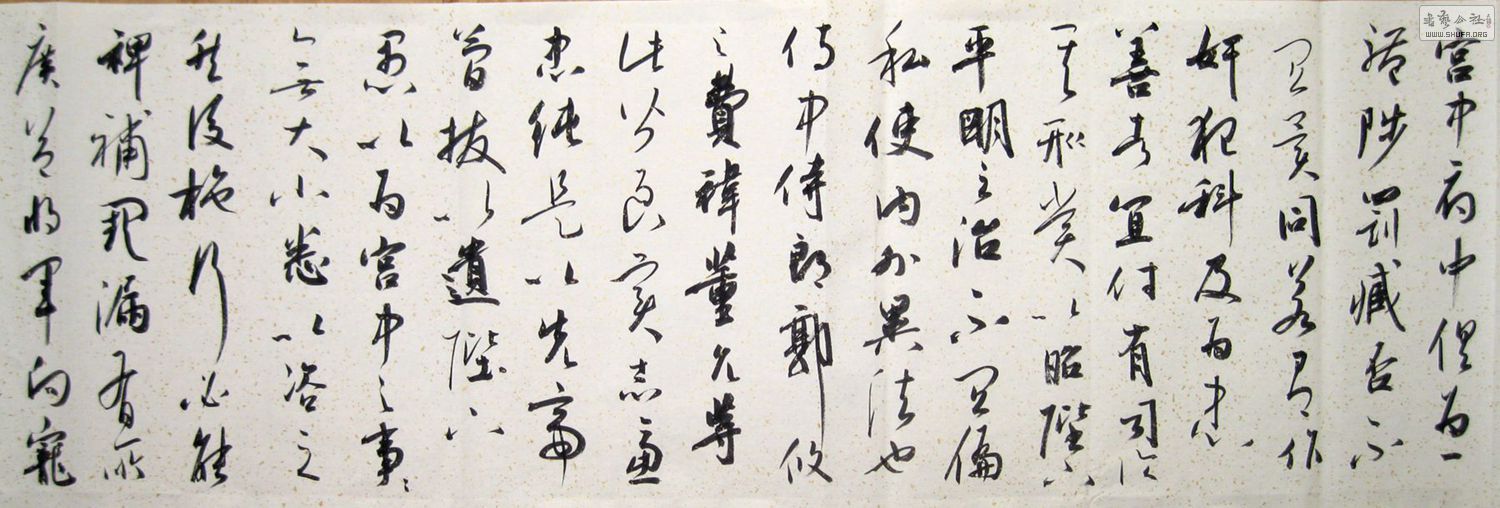 宮中府中俱為一
體陟罰臧否不
宜異同若有作
奸犯科及為忠
善者宜付有司論
其刑賞以昭陛下
平明之治不宜偏
私使內外異法也
侍中侍郎郭攸
之費禕董允等
此皆良實志慮
忠純是以先帝
簡拔以遺陛下
愚以為宮中之事々
無大小悉以咨之
然後施行必能
裨補闕漏有所
廣益將軍向寵
書藝公社
WWW.SHUFA.ORG